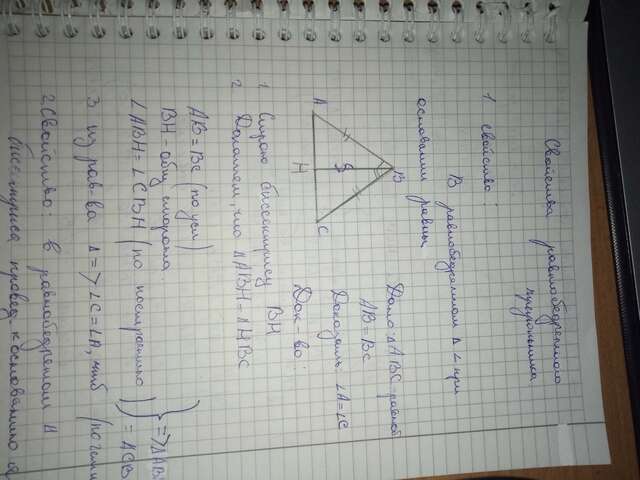 Свойства равнобедренного
треугольника
1 свойство:
В равнобедренном Δ ∠ при
основании равны
A
B
C
H
Дано: ΔABC - равноб
AB = BC
Доказать: ∠A = ∠C
Док-во:
1 Строю биссектрису BH
2 Докажем, что ΔABH = ΔHBC
AB = BC (по усл)
BH - общ сторона
∠ABH = ∠CBH (по построению) } => ΔABH
= ΔCB
3 из рав-ва Δ => ∠C = ∠A, чтд
2 Свойство: В равнобедренном Δ
биссектриса провед. к основанию